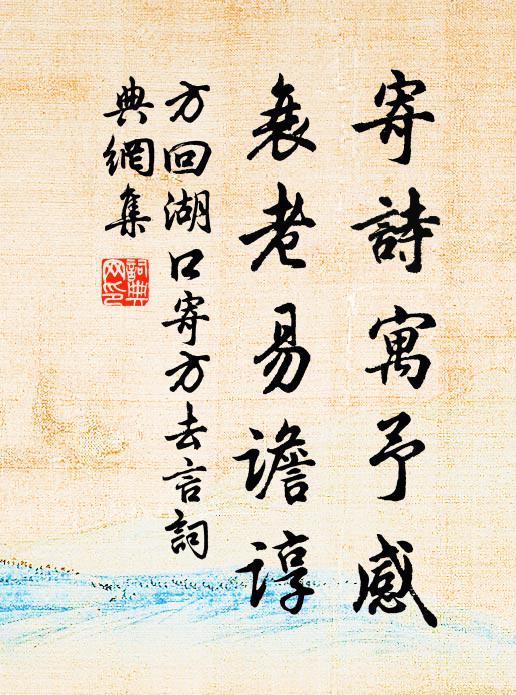 寄詩寓予感
衰老易譫諄
方回湖口寄方去言詞
典網集
詞典网印